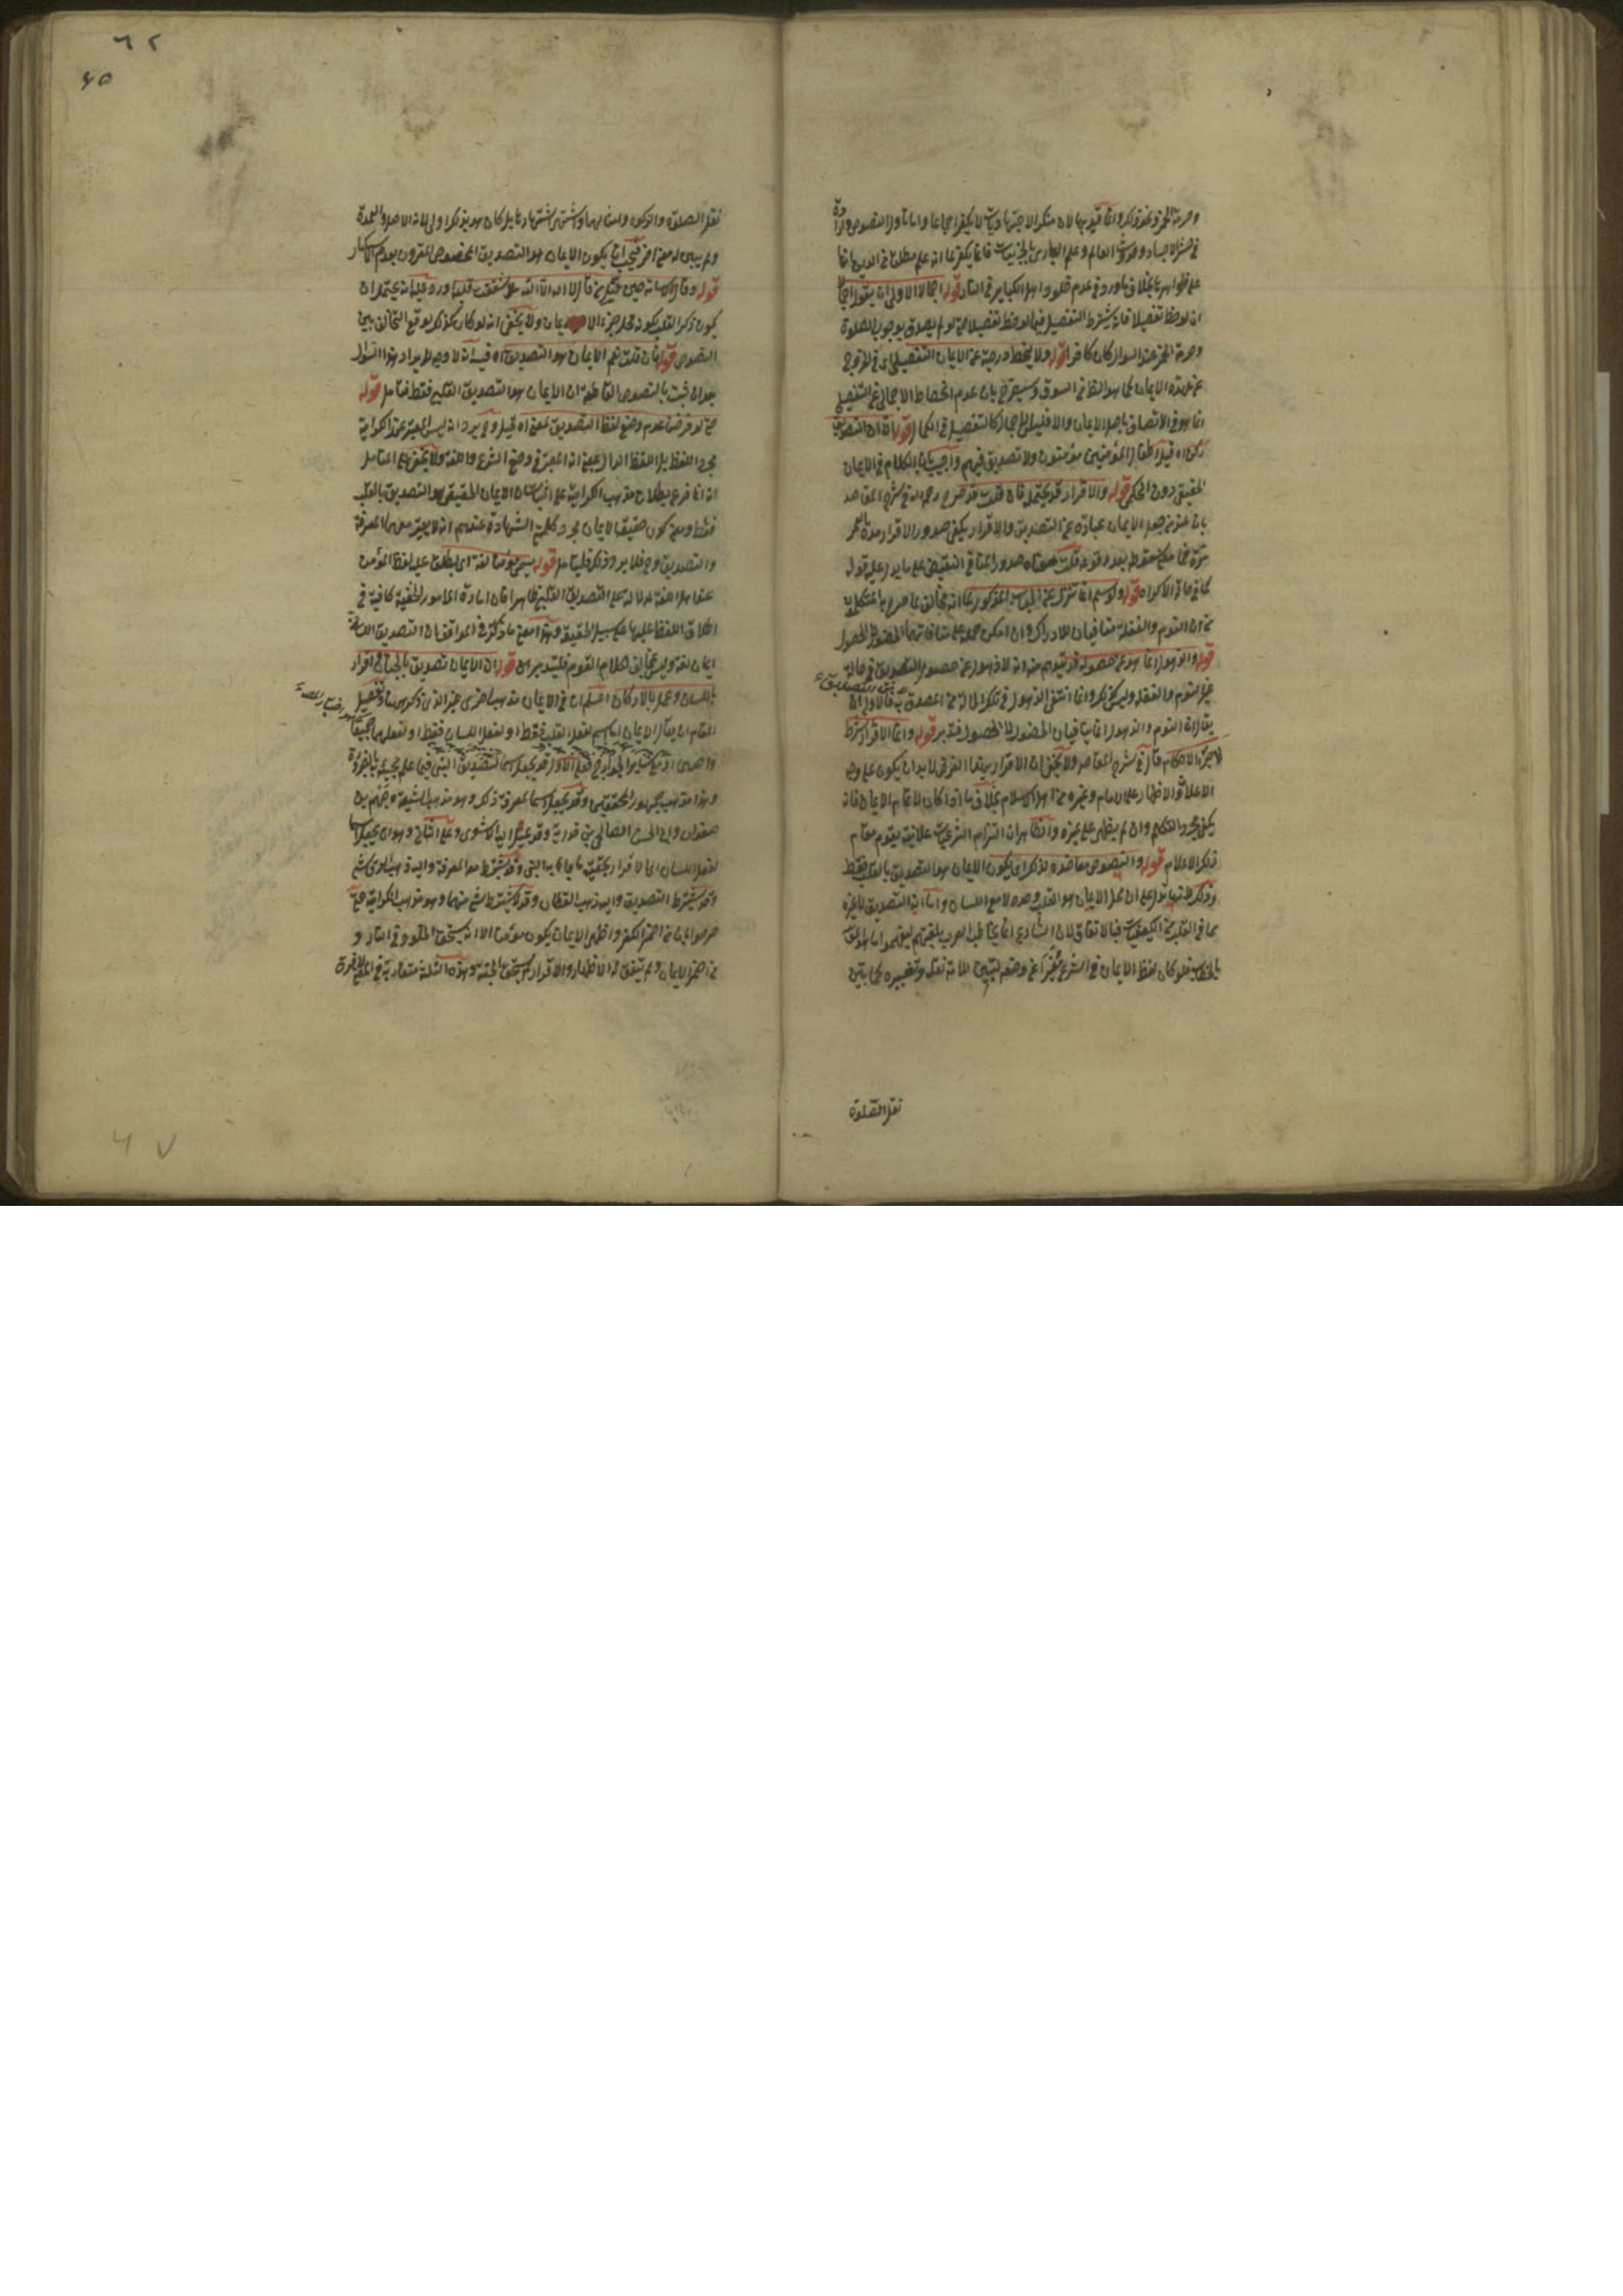 وحرمة الخمر ونحو ذلك وانما قيد بها لان منكر الاجتهاديات لا يكفر اجماعا واما تأويل النصوص الواردة
في حشر الاجساد وحدوث العالم وعلم الباري بالجزئيات فانما يكفر لما انه علم مطلقا من الدين انها
على ظواهرها بخلاف ما ورد في عدم خلود اهل الكبائر في النار قوله اجمالا الاولى ان يقول اجمالا
ان لوحظ تفصيلا فانه يشترط التفصيل فيما لوحظ تفصيلا حتى لو لم يصدق بوجوب الصلوة
وحرمة الخمر عند السؤال كان كافرا قوله ولا ينحط درجته عن الايمان التفصيلي اي في الخروج
عن عهدة الايمان كما هو الظ من السوق وسيصرح بان عدم انحطاط الاجمالي عن التفصيلي
انما هو في الاتصاف باصل الايمان والا فليس الاجمال كالتفصيل في الكمال قوله الا ان التصديق
ركن اه قيل اطفال المؤمنين مؤمنون ولا تصديق فيهم واجيب بان الكلام في الايمان
الحقيقي دون الحكمي قوله والاقرار قد يحتمله فان قلت قد صرح رحمه الله في شرح المقاصد
بان عند من جعل الايمان عبارة عن التصديق والاقرار يكفي صدور الاقرار مدة العمر
مرة فما معنى سقوطه بعد وقوعه قلت معناه صدور المنافي النقيض على ما يدل عليه قوله
كما في حالة الاكراه قوله ولو سلم
من ان النوم والغفلة منافيان للادراك وان امكن حمله على منافاتهما الحضور لا الحصول
قوله والذهول انما هو عن حصوله قد يتوهم منه انه لا ذهول عن حصول التصديق في حالة
غير النوم والغفلة وليس كذلك وانما انتفى الذهول في تلك الحالة عن التصديق فالاولى ان
يقال ان النوم والذهول انما ينافيان الحضور لا الحصول فتدبر قوله وانما الاقرار شرط
لاجراء الاحكام قال في شرح المقاصد ولا يخفى ان الاقرار بهذا الغرض لا بد ان يكون على وجه
الاعلان والاظهار على الامام وغيره من اهل الاسلام بخلاف ما اذا كان لاتمام الايمان فانه
يكفي مجرد التكلم وان لم يظهر على غيره والظاهر ان التزام الشرعيات علانية يقوم مقام
ذلك الاعلام قوله والنصوص معاضدة لذلك اي لكون الايمان هو التصديق بالقلب فقط
وذلك لانها تدل على ان محل الايمان هو القلب وحده لا مع اللسان واما انه التصديق لا غيره
مما في القلب من الكيفيات فبالاتفاق لان الشارع انما يخاطب العرب بلغتهم ليفهموا ما هو المق
بالخطاب فلو كان لفظ الايمان في الشرع مغيرا عن وضعه لتبين للامة نقله وتغييره كما تبين
نقل الصلوة
نقل الصلوة والزكوة وامثالهما واشتهر اشتهار نظائره بل كان هو بذلك اولى لانه الاصل والعمدة
ولم يبين له معنى اخر فتعين ان يكون الايمان هو التصديق المخصوص المقرون بعدم الانكار
قوله وقال لاسامة حين قتل من قال لا اله الا الله هل شققت قلبه ورد عليه انه يحتمل ان
يكون ذكر القلب لكونه محل جزء الايمان ولا يخفى انه لو كان كذلك لوقع التخالف بين
النصوص قوله فان قلت نعم الايمان هو التصديق اه فيه انه لا وجه لايراد هذا السؤال
بعد ان ثبت بالنصوص القاطعة ان الايمان هو التصديق القلبي فقط فتامل قوله
حتى لو فرضنا عدم وضع لفظ التصديق لمعنى اه قيل وح يرد انه ليس المعتبر عند الكرامية
مجرد اللفظ بل اللفظ الدال بمعنى انه المعتبر في وضع الشرع واللغة ولا يخفى على المتامل
انه انما فرع بطلان مذهب الكرامية على اثبات ان الايمان الحقيقي هو التصديق بالقلب
فقط ومعنى كون حقيقة الايمان مجرد كلمتي الشهادة عندهم انه لا يعتبر معهما المعرفة
والتصديق وح فلا يرد ذلك فليتامل قوله يسمى مؤمنا لغة اي يطلق عليه لفظ المؤمن
عند اهل اللغة لدلالته على التصديق القلبي ظاهرا فان امارة الامور الخفية كافية في
اطلاق اللفظ عليها على سبيل الحقيقة وهذا معنى ما ذكر في المواقف ان التصديق اللساني
ايمان لغة وليس مخالفا لكلام القوم فليتدبر قوله ان الايمان تصديق بالجنان واقرار
باللسان وعمل بالاركان اعلم ان في الايمان مذاهب اخرى غير الذي ذكر ههنا وتفصيل
المقام ان يقال الايمان اما اسم لفعل القلب فقط او لفعل اللسان فقط او لفعلهما جميعا
واحدهما او مع سائر الجوارح فعلى الاول قد يجعل اسما للتصديق النبي فيما علم مجيئه بالضرورة
وهذا مذهب جمهور المحققين وقد يجعل اسما لمعرفة ذلك وهو مذهب الشيعة وجهم بن
صفوان وابي الحسين الصالحي من قدرية وقد يميل اليه الاشعري وعلى الثاني وهو ان يجعل اسما
لفعل اللسان اي الاقرار بحقيقة ما جاء به النبي وقد يشترط معه المعرفة واليه ذهب الرقاشي
وقد يشترط التصديق واليه ذهب القطان وقد لا يشترط شئ منهما وهو مذهب الكرامية حتى
صرحوا بان من اضمر الكفر واظهر الايمان يكون مؤمنا الا انه يستحق الخلود في النار و
من اضمر الايمان ولم يتفق له الاظهار والاقرار لم يستحق الجنة وهذه الثلثة متقاربة
٦٢
٦٥
٦٧